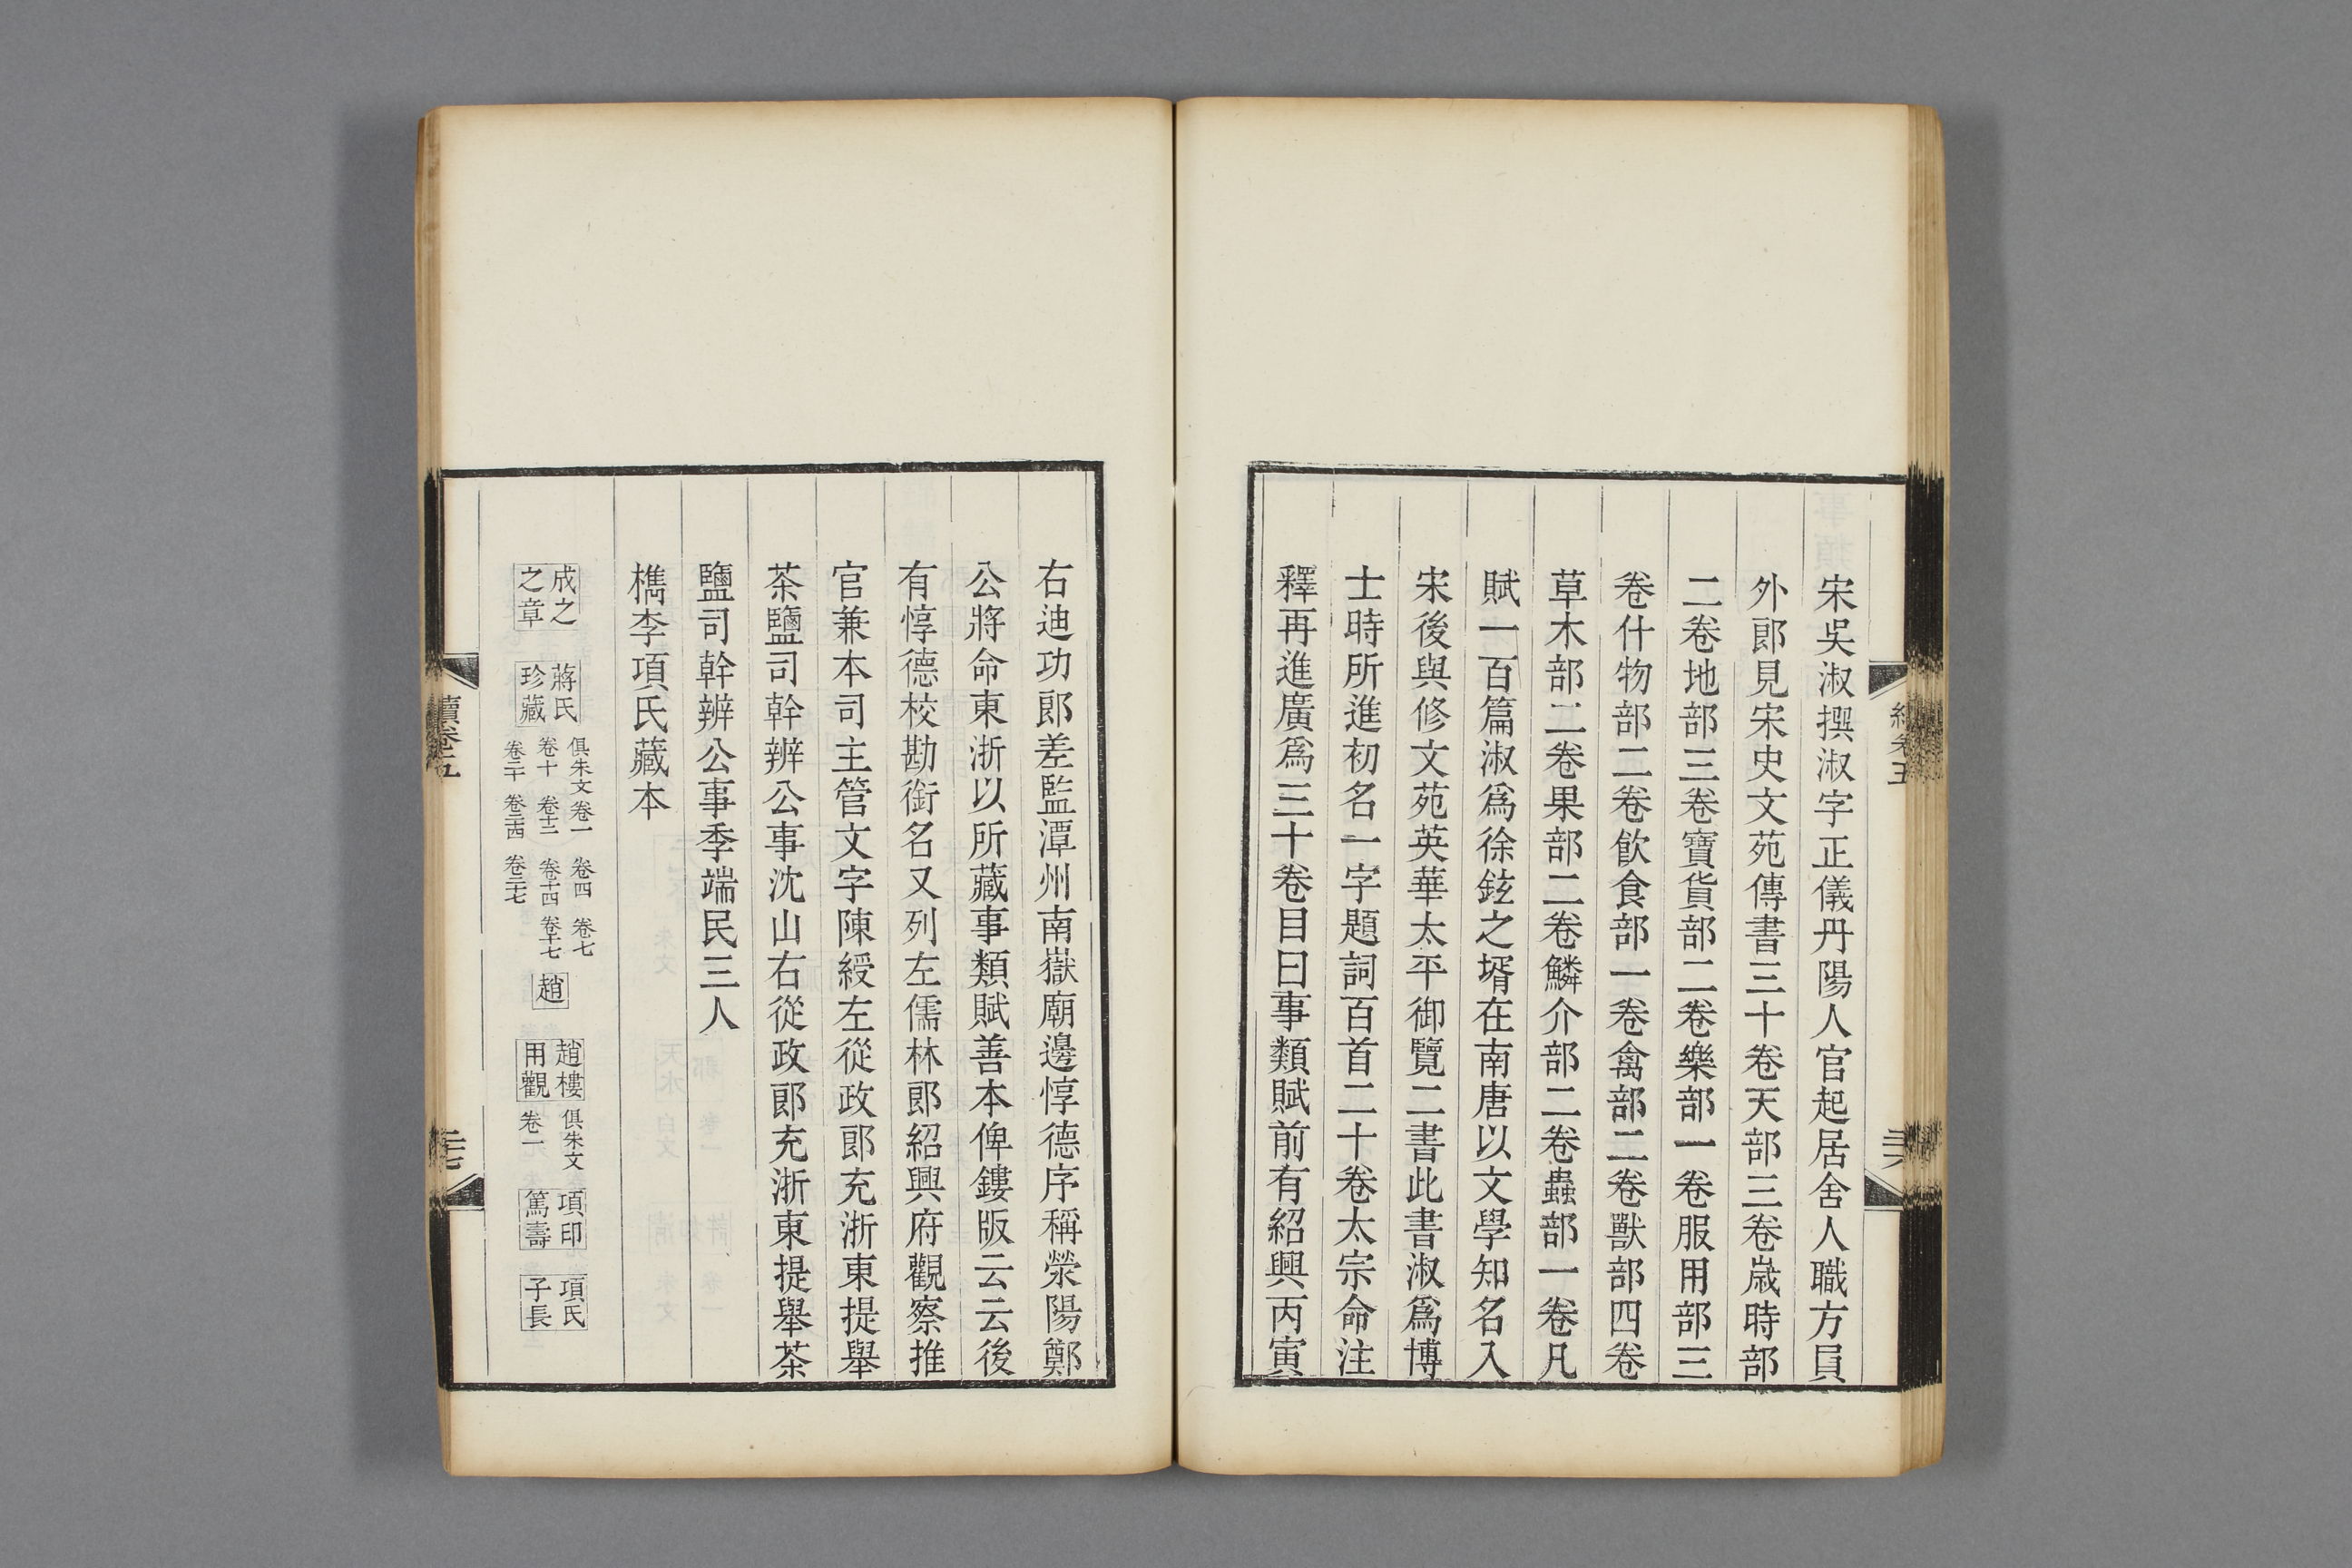 宋吳淑撰淑字正儀丹陽人官起居舍人職方員
外郎見宋史文苑傳書三十卷天部三卷歲時部
二卷地部三卷寶貨部二卷樂部一卷服用部三
卷什物部二卷飲食部一卷禽部二卷獸部四卷
草木部二卷果部二卷鱗介部二卷蟲部一卷凡
賦一百篇淑爲徐鉉之壻在南唐以文學知名入
宋後與修文苑英華太平御覽二書此書淑爲博
士時所進初名一字題詞百首二十卷太宗命注
釋再進廣爲三十卷目曰事類賦前有紹興丙寅
右迪功郎差監潭州南嶽廟邊惇德序稱滎陽鄭
公將命東浙以所藏事類賦善本俾鏤版云云後
有惇德校勘銜名又列左儒林郎紹興府觀察推
官兼本司主管文字陳綬左從政郎充浙東提舉
茶鹽司幹辨公事沈山右從政郎充浙東提舉茶
鹽司幹辨公事季端民三人
檇李項氏藏本
成之之章
蔣氏珍藏
俱朱文卷一 卷四 卷七
卷十 卷十二 卷十四 卷十七
卷二十 卷二十四 卷二十七
趙
趙樓用觀
俱朱文
卷一
項印篤壽
項氏子長
續卷五